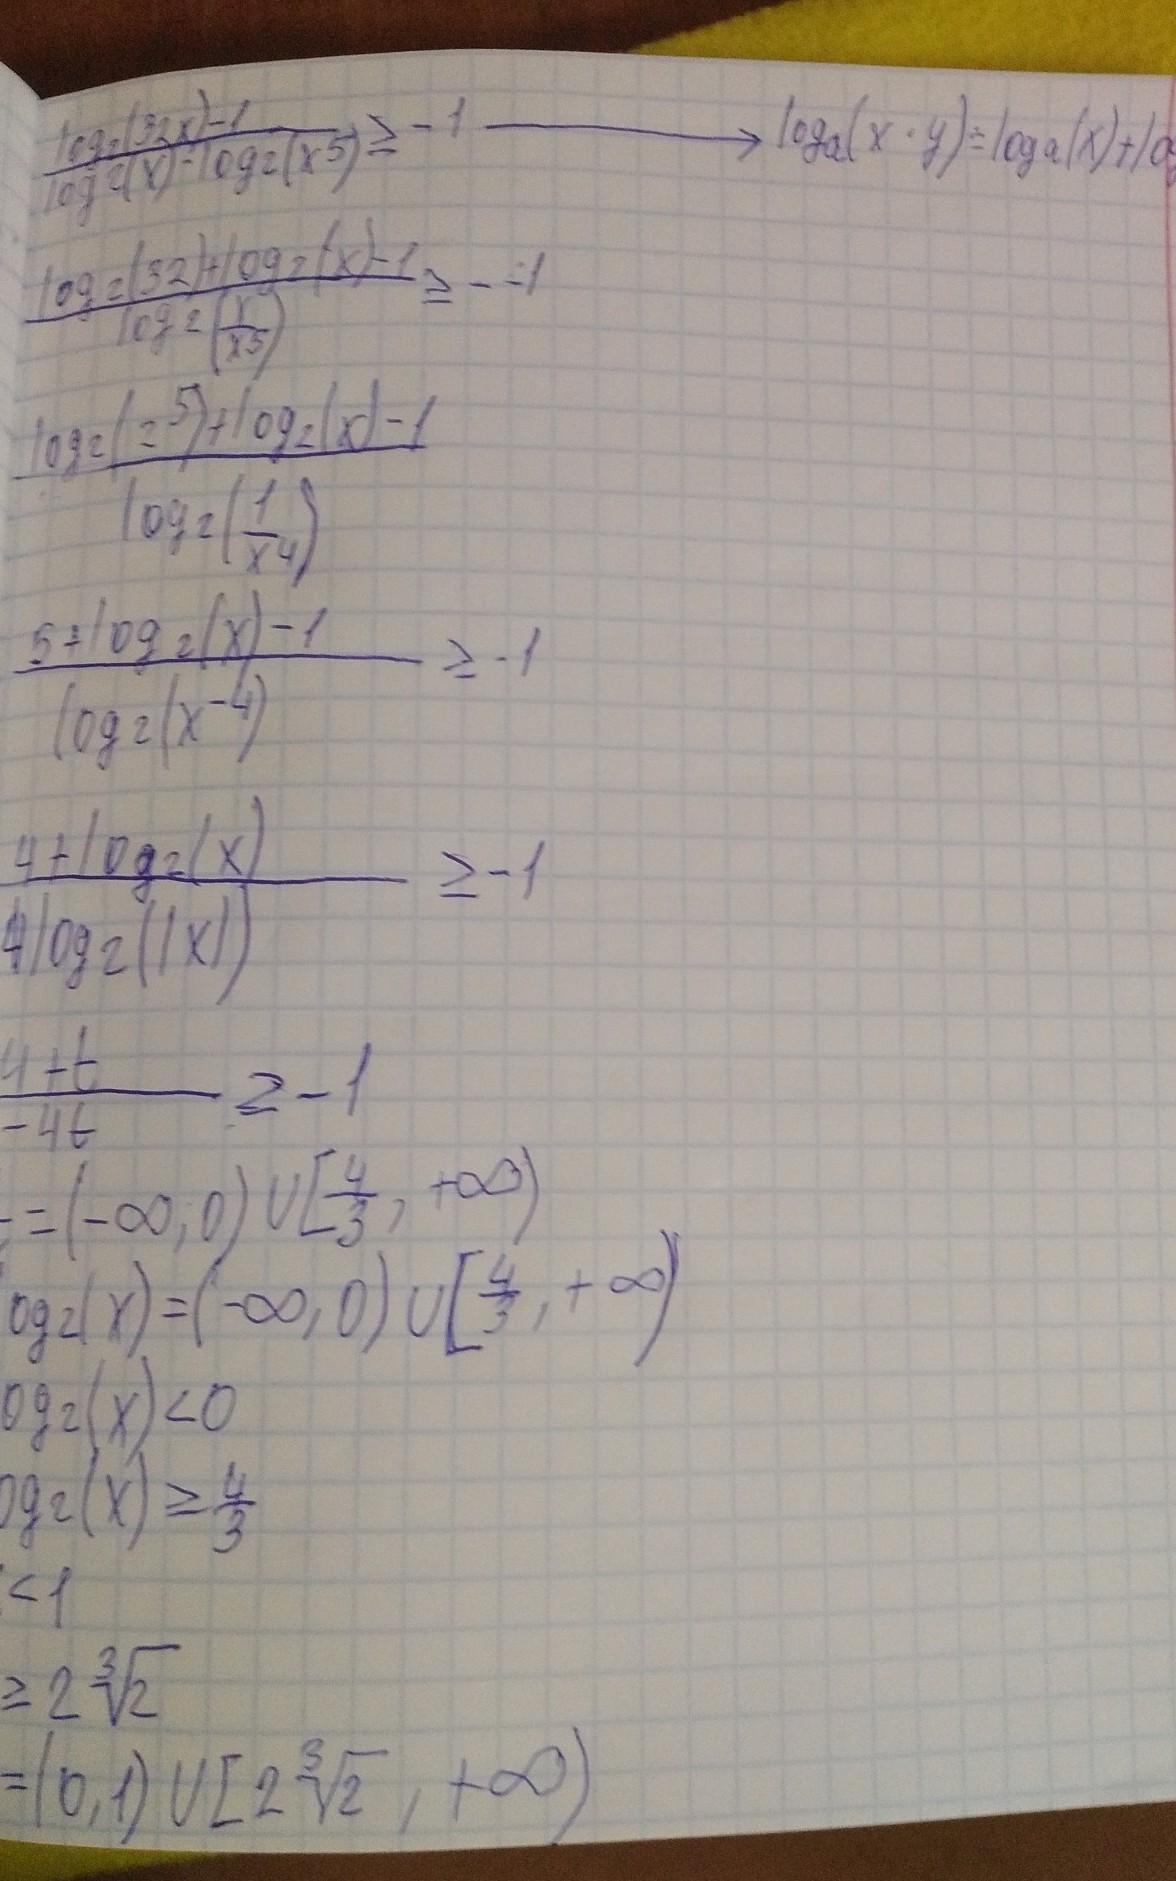 log₂(32x)-1 / log₂(x)-log₂(x5) ≥ -1 → logₐ(x·y)=logₐ(x)+log
log₂(32)+log₂(x)-1 / log₂(x/x5) ≥ --1
log₂(2⁵)+log₂(x)-1 / log₂(1/x⁴)
5+log₂(x)-1 / log₂(x⁻⁴) ≥ -1
4+log₂(x) / 4log₂(|x|) ≥ -1
4+t / -4t ≥ -1
=(-∞,0)∪[4/3, +∞)
og₂(x)=(-∞,0)∪[4/3, +∞)
og₂(x)<0
og₂(x) ≥ 4/3
<1
≥ 2∛2
=(0,1)∪[2∛2, +∞)